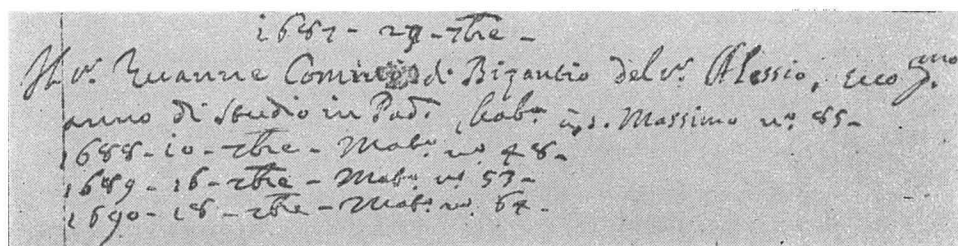 1687 - 29 - 7bre -
Il Sr. Zuanne Comino d. Bizantio del Sr. Alessio, suo pmo
anno di Studio in Pad. hab. à S. Massimo no. 85 -
1688 - 10 - 7bre - Mab. no. 48 -
1689 - 16 - 7bre - Mab. no. 53 -
1690 - 18 - 7bre - Mab. no. 64 -